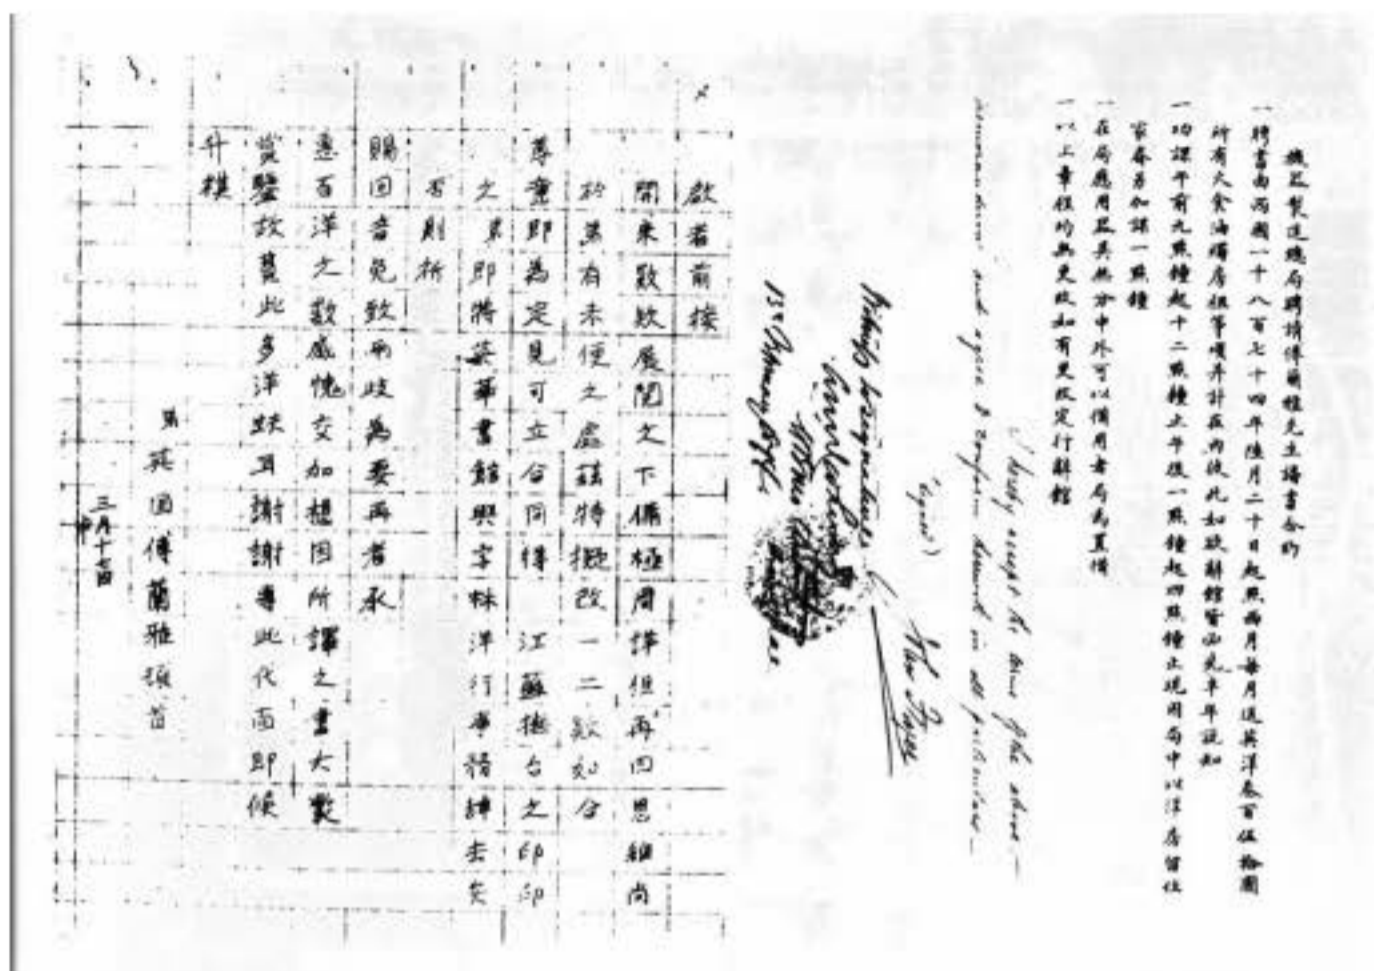 機器製造總局聘請傅蘭雅先生譯書合約
一聘書由西國一千八百七十四年陸月二十日起照西月每月送英洋叁百伍拾圓
所有火食油燭房租等項并計在內彼此如欲辭館皆必先半年說知
一功課午前九點鐘起十二點鐘止午後一點鐘起四點鐘止現因局中以洋房留住
家眷另加課一點鐘
一在局應用器具無分中外可以備用者局為置備
一以上章程均無更改如有更改定行辭館
I hereby accept the terms of the above
memorandum and agree to conform herewith in all particulars
(signed) John Fryer
British
啟者前接
開來數款展閱之下備極周詳但再四思維尚
於弟有未便之處茲特擬改一二款如合
尊意即為定見可立合同得 江蘇撫台之印印
之弟即將英華書館與字林洋行事務肆去矣
否則祈
賜回音免致兩歧為要再者承
惠百洋之數感愧交加想因所譯之書大數
當鑒故賞此多洋玆耳謝謝專此代面即候
升祺
弟 英國傅蘭雅頓首
三月十七日